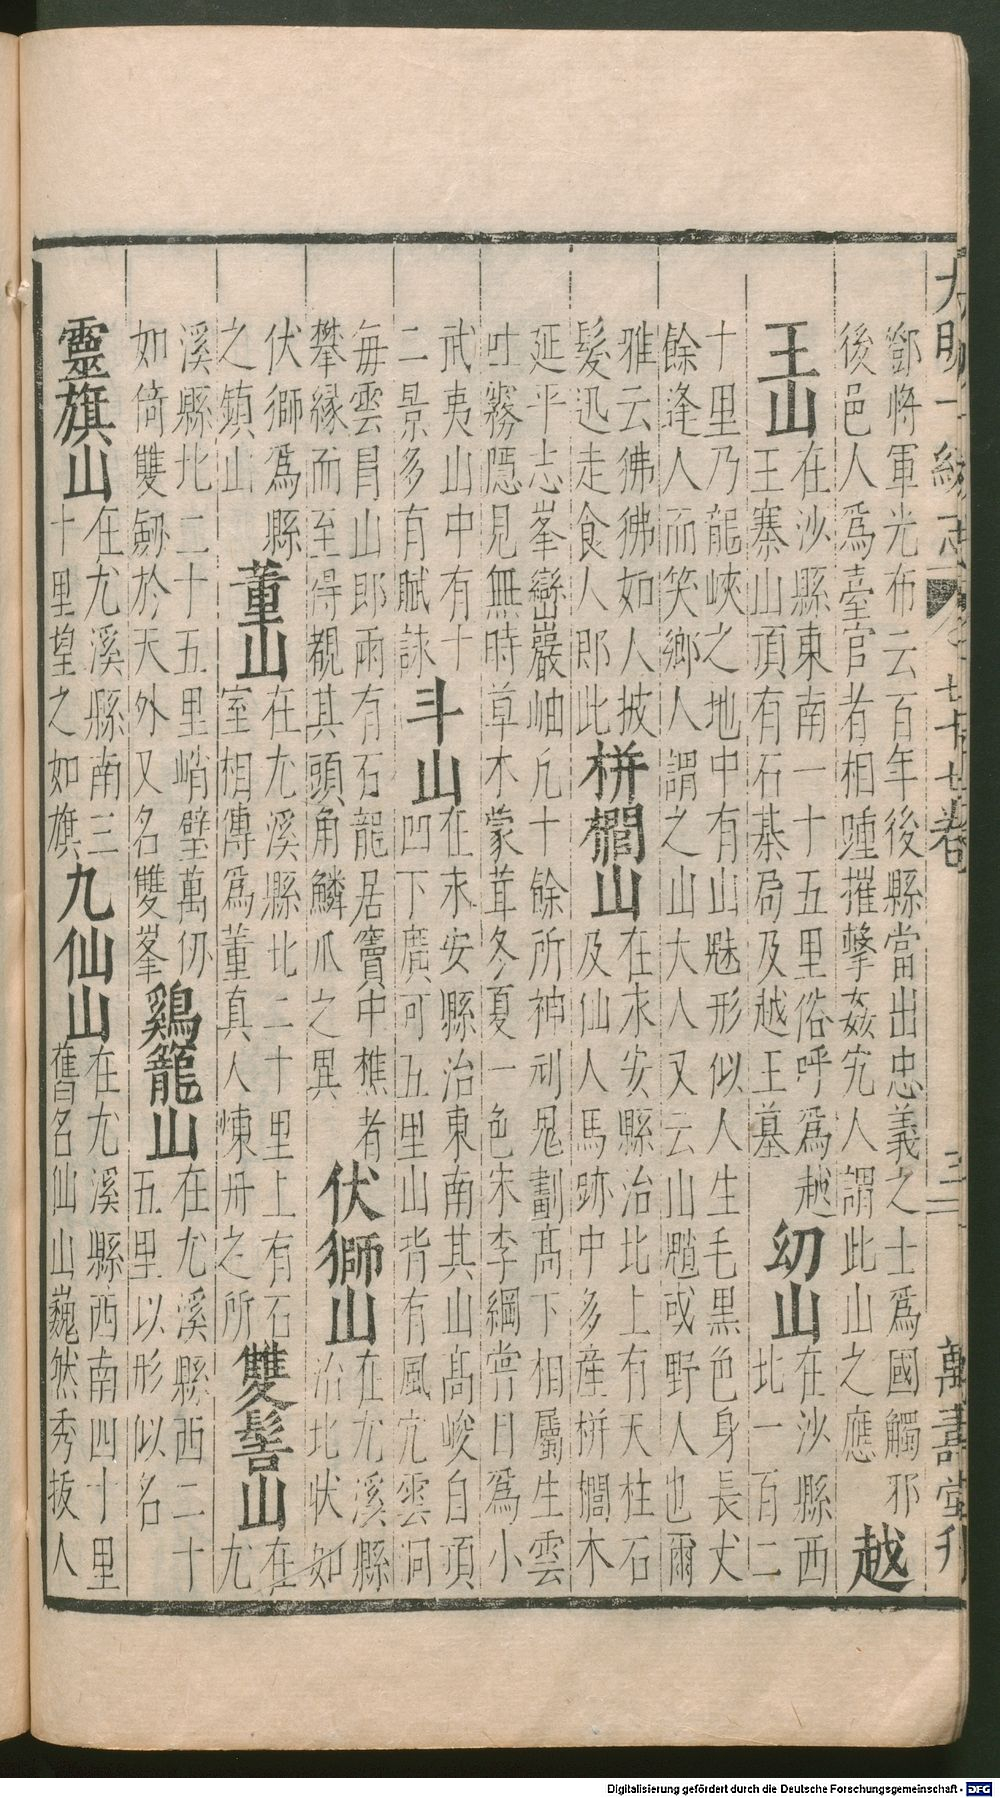 大明一統志 卷七十七 三 萬壽堂刋
鄧將軍光布云百年後縣當出忠義之士爲國觸邪
後邑人爲臺官者相踵摧擊姦宄人謂此山之應
越
王山
在沙縣東南一十五里俗呼爲越
王寨山頂有石棊局及越王墓
幼山
在沙縣西
北一百二
十里乃龍峽之地中有山魅形似人生毛黑色身長丈
餘逢人而笑鄉人謂之山大人又云山魈或野人也爾
雅云狒狒如人披
髮迅走食人即此
栟櫚山
在永安縣治北上有天柱石
及仙人馬跡中多產栟櫚木
延平志峯巒巖岫凢十餘所神刓鬼劃高下相屬生雲
吐霧隱見無時草木蒙茸冬夏一色宋李綱嘗曰爲小
武夷山中有十
二景多有賦詠
斗山
在永安縣治東南其山高峻自頂
凹下廣可五里山背有風穴雲洞
每雲冒山即雨有石龍居竇中樵者
攀緣而至得覩其頭角鱗爪之異
伏獅山
在尤溪縣
治北狀如
伏獅爲縣
之鎮山
董山
在尤溪縣北二十里上有石
室相傳爲董真人煉丹之所
雙髻山
在
尤
溪縣北二十五里峭壁萬仞
如倚雙劒於天外又名雙峯
鷄籠山
在尤溪縣西二十
五里以形似名
靈旗山
在尤溪縣南三
十里望之如旗
九仙山
在尤溪縣西南四十里
舊名仙山巍然秀拔人
Digitalisierung gefördert durch die Deutsche Forschungsgemeinschaft - DFG